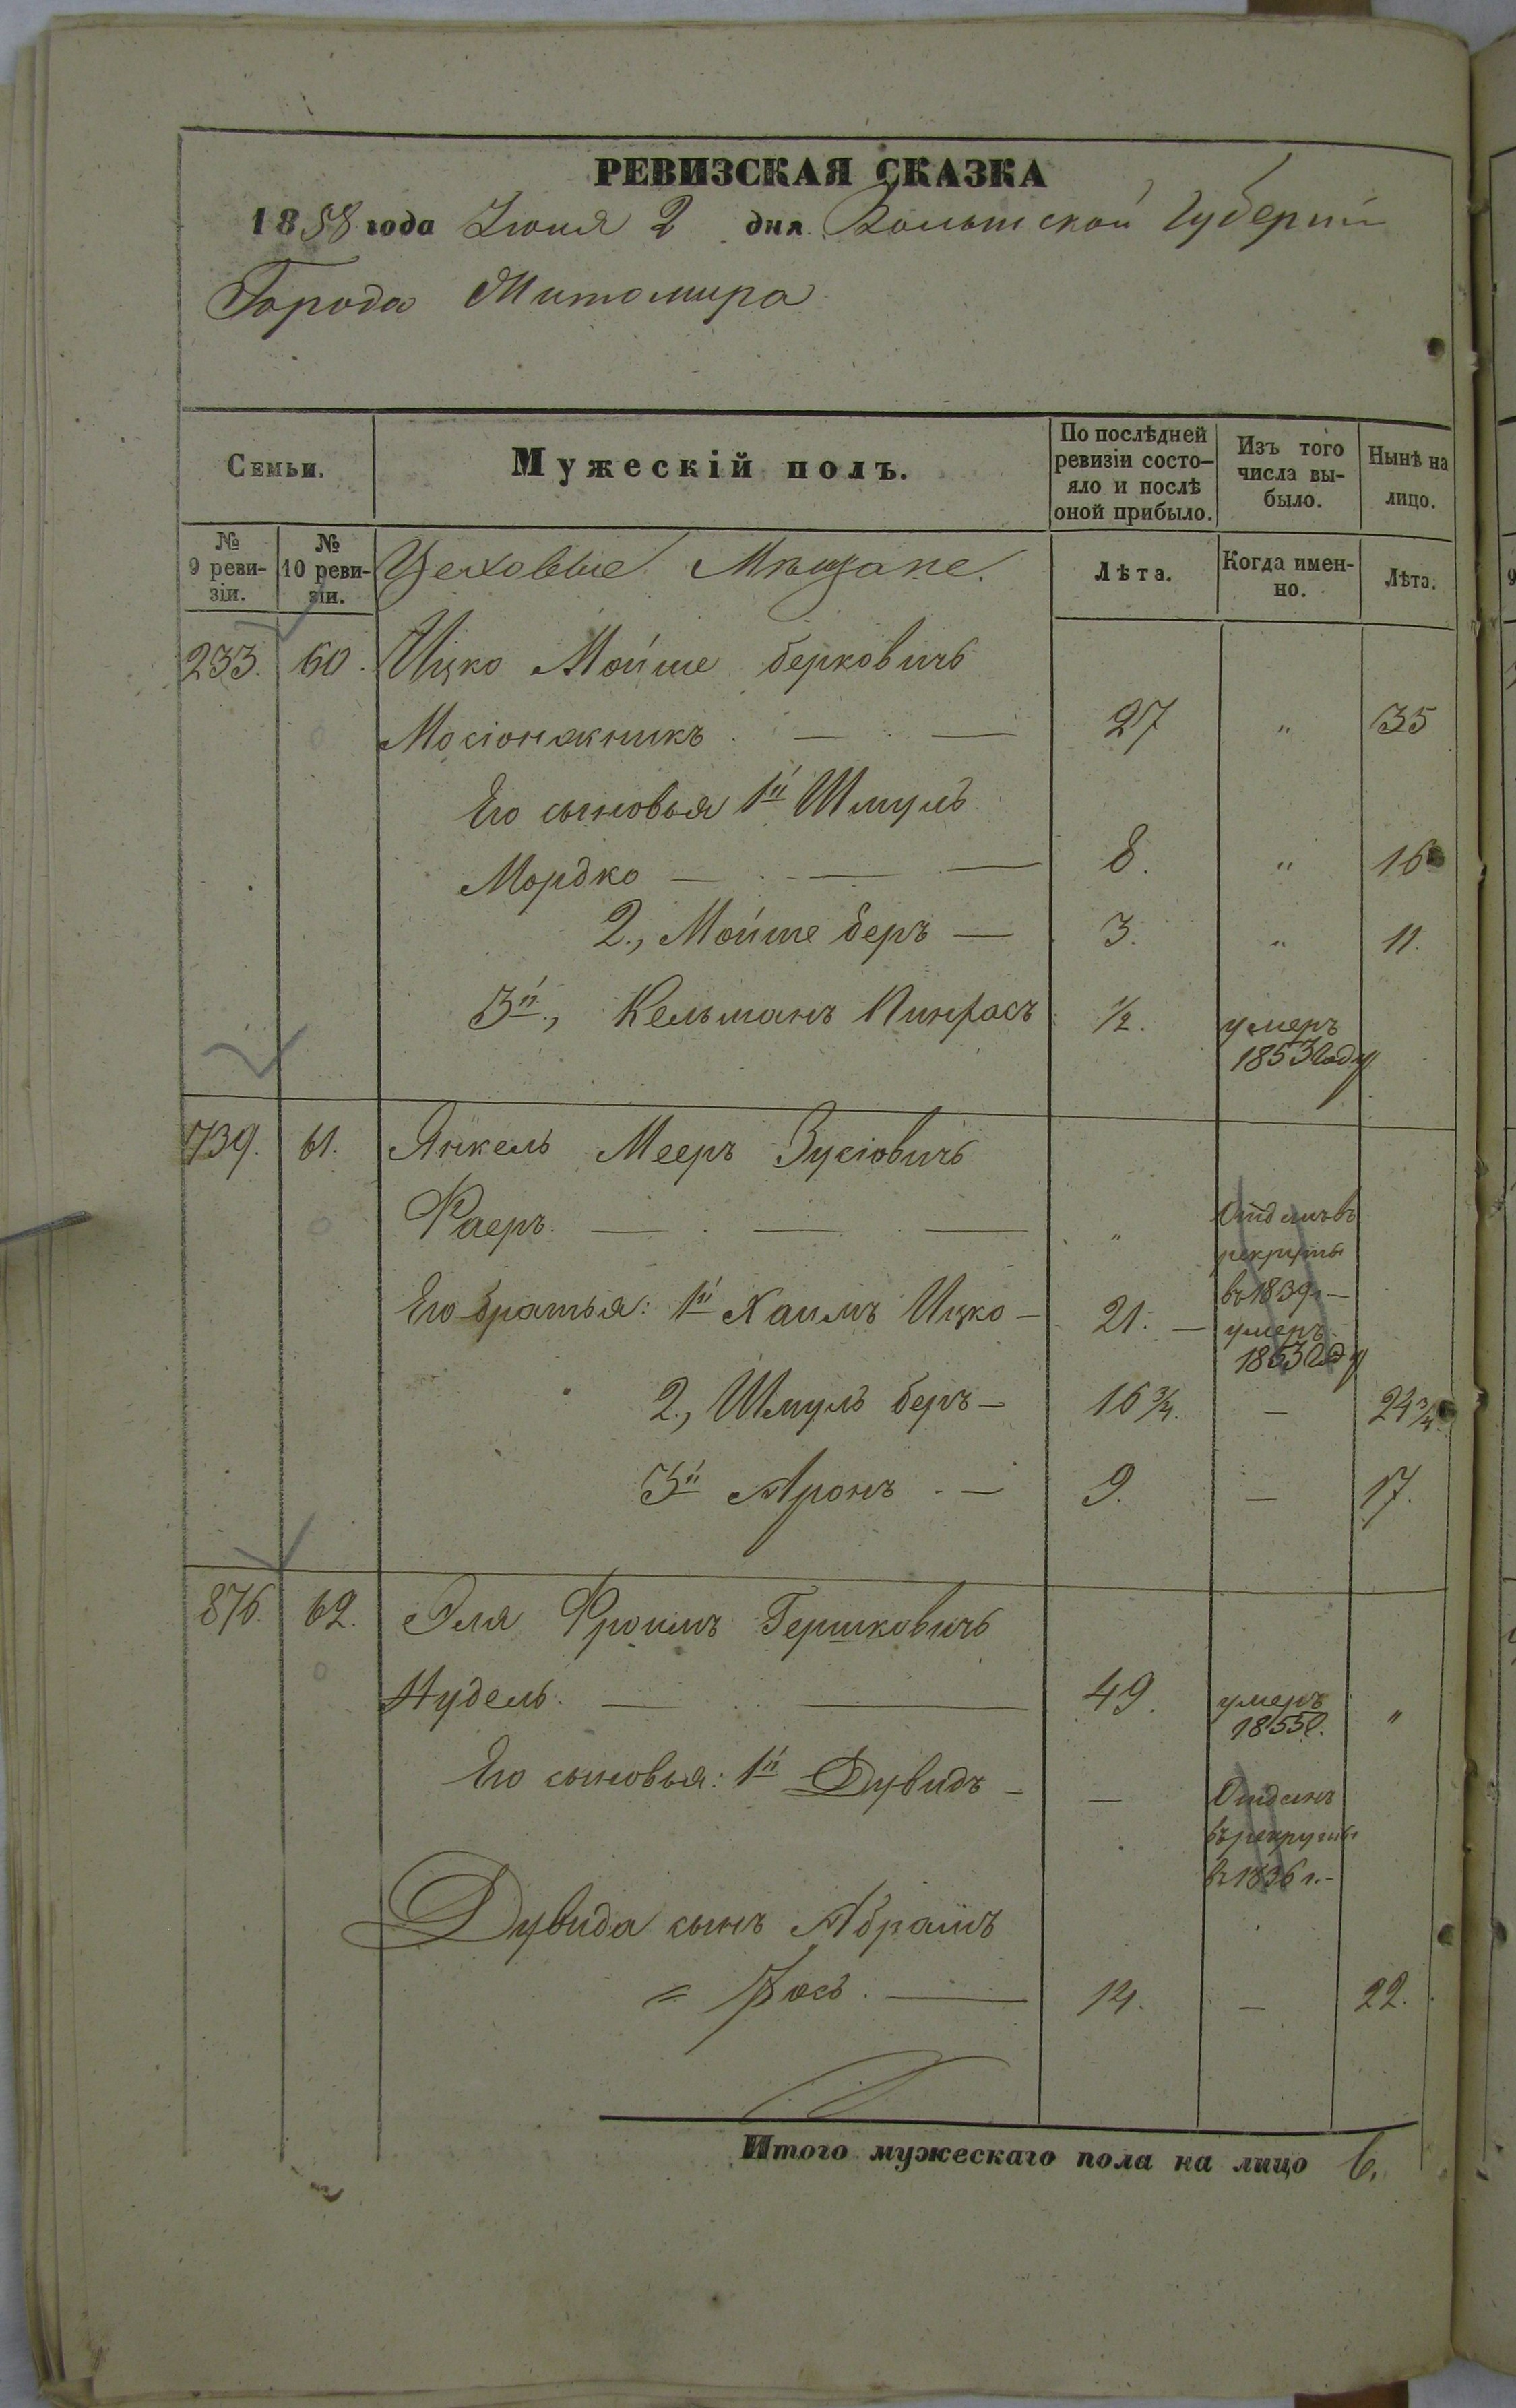 РЕВИЗСКАЯ СКАЗКА
1858 года Июня 2 дня Волынской Губерніи
Города Житомира
Семьи.
Мужескій полъ.
По послѣдней ревизіи состо-
яло и послѣ оной прибыло.
Изъ того числа вы-
было.
Нынѣ на лицо.
№ 9 реви-
зіи.
№ 10 реви-
зіи.
Цеховые Мѣщане.
Лѣта.
Когда имен-
но.
Лѣта.
233. 60. Ицко Мойше Берковичъ
Мосіонжникъ. — — 27 " 35
Его сыновья 1й Шмуль
Мордко — — — 8. " 16
2., Мойше беръ — 3. " 11.
3й., Кельманъ Пинхасъ ½. умеръ
1853 году
739. 61. Янкель Мееръ Зусіовичъ
Фаеръ. — — — " Отданъ въ
рекруты
въ 1839 г. —
Его братья: 1й Хаимъ Ицко — 21. — умеръ
1853 году
2., Шмуль беръ — 16¾. — 24¾.
3й Аронъ. — 9. — 17.
876. 62. Эля Фроимъ Гершковичъ
Нудель. — — 49. умеръ "
1855 г.
Его сыновья: 1й Дувидъ — — Отданъ
въ рекруты
въ 1836 г. -
Дувида сынъ Абрамъ
= Іось. — 14. — 22.
Итого мужескаго пола на лицо 6.